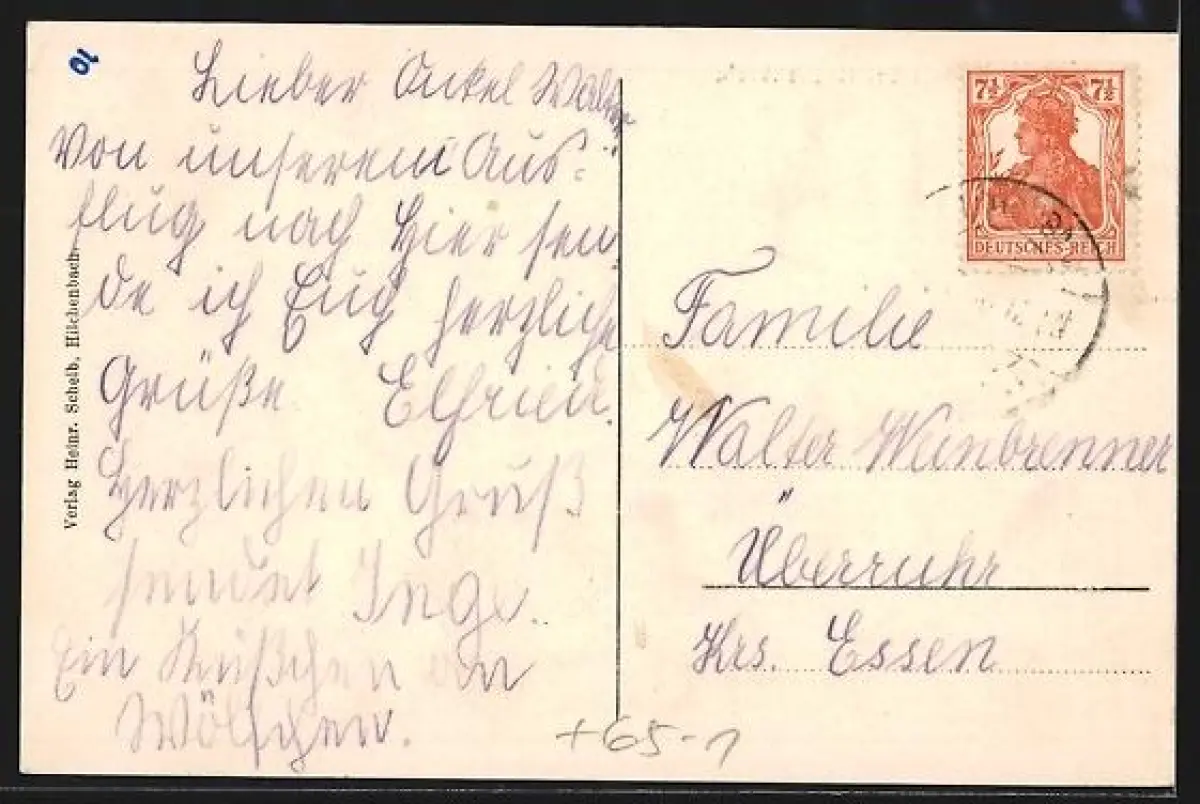 10
Lieber Onkel Walter
Von unserem Aus-
flug nach hier sen
de ich Euch herzliche
Grüße Elfriede.
Herzlichen Gruß
sendet Inge.
Ein Küßchen an
Wölfchen.
Verlag Heinr. Scheib, Hilchenbach
7½ 7½
DEUTSCHES REICH
Familie
Walter
Überruhr
Krs. Essen
+65-1